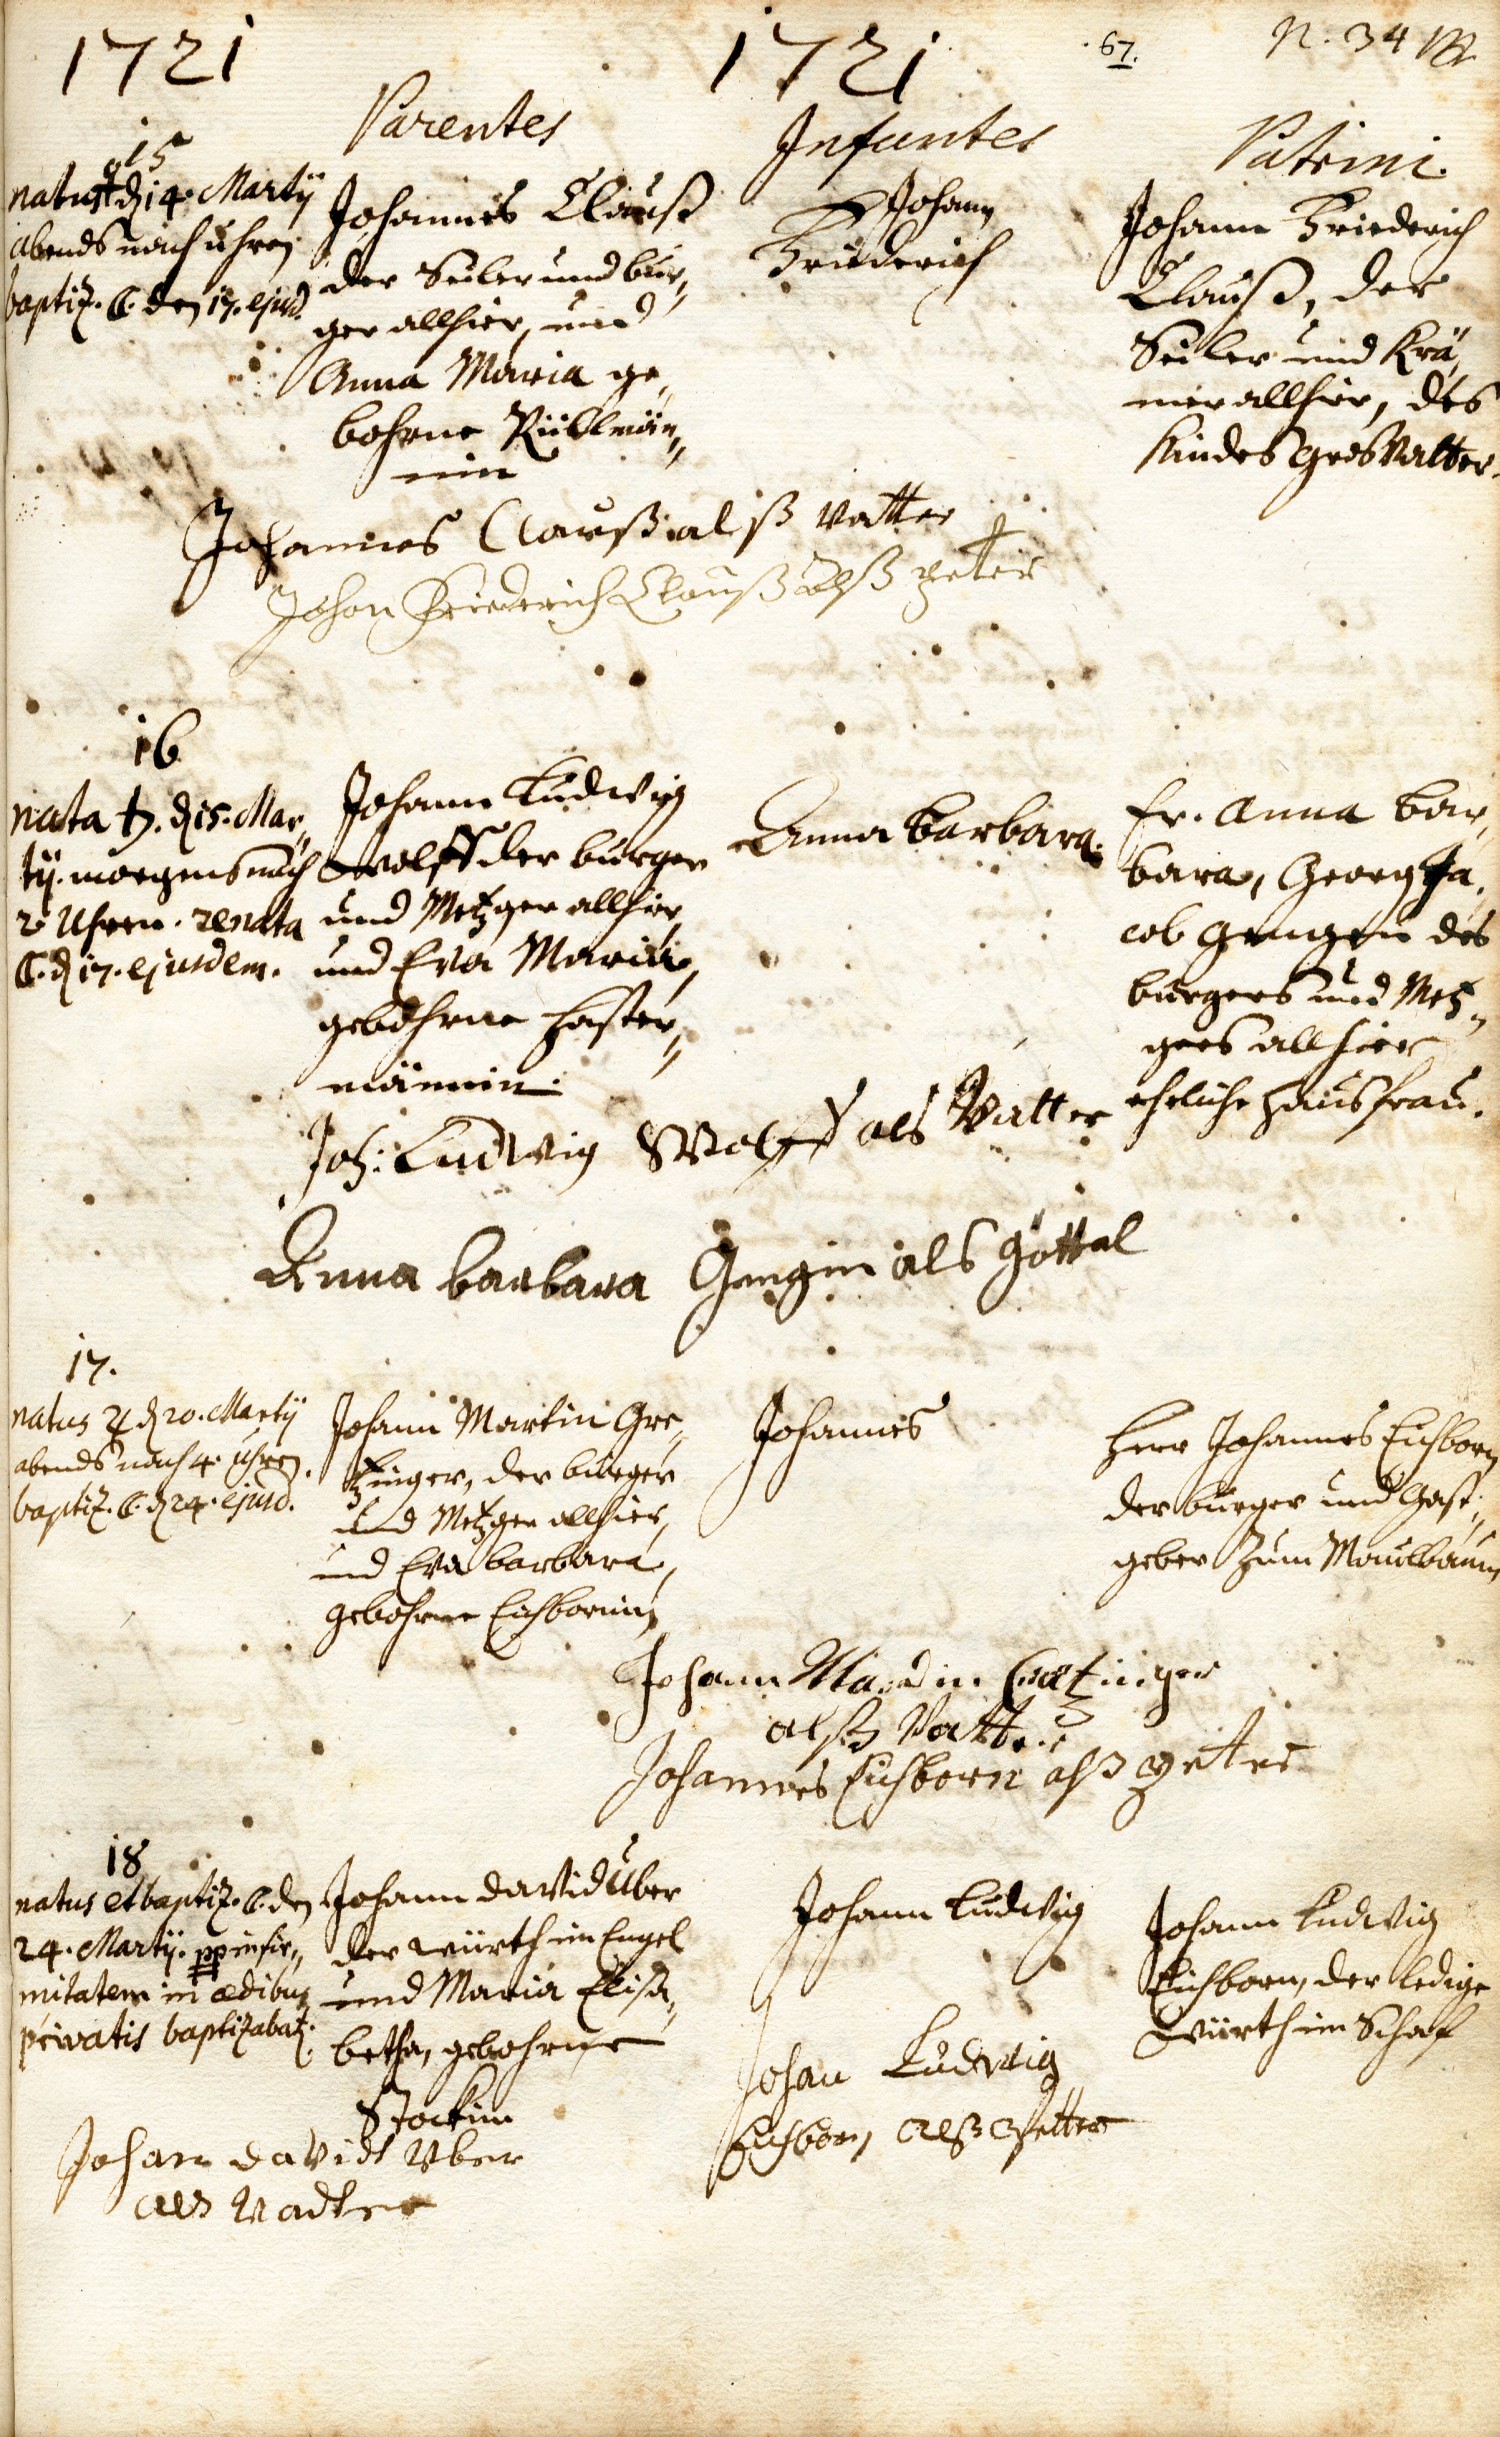 1721 1721 67. N. 34
Parentes Infantes Patrini.
15
natus ♀ d. 14. Martij
abends nach uhren
baptiz. ☾. den 17. ejusd.
Johannes Clauß
der Seiler und bur„
ger allhier, und
Anna Maria ge„
bohrne Rüllmän„
nin
Johann
Friederich
Johann Friederich
Clauß, der
Seiler und Krä„
mer allhier, des
Kindes GrosVatter.
Johannes Clauß alß Vatter
Johan Friederich Clauß alß petter
16
nata ♄. d. 15. Mar„
tij. morgens nach
2 Uhren. renata
☾. d. 17. ejusdem.
Johann Ludwig
Wolff der burger
und Metzger allhier,
und Eva Maria,
gebohrne Haster„
männin.
Anna Barbara.
Fr. Anna Bar„
bara, Georg Ja„
cob des
burgers und Metz„
gers allhier
eheliche Hausfrau.
Joh: Ludwig Wolff als Vatter
Anna barbara als Göttel
17.
natus ♃ d. 20. Martij
abends nach 4. uhren.
baptiz. ☾. d. 24. ejusd.
Johann Martin Gre„
tzinger, der burger
und Metzger allhier,
und Eva barbara,
gebohrne Eichbornin
Johannes
Herr Johannes Eichborn
der burger und Gast„
geber Zum Maulbaum
Johann Martin Gretzinger
alß Vatter
Johannes Eichborn alß petter
18
natus et baptiz. ☾. den
24. Martij. pp infir„
mitatem in ædibus
privatis baptizabat.
Johann david Uber
der würth im Engel
und Maria Elisa„
betha, gebohrne
Stockin
Johann Ludwig
Johann Ludwig
Eichborn, der ledige
würth im Schaf
Johan Ludwig
Eichborn, alß petter
Johan davidt Uber
als Vadter